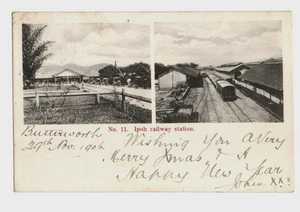 No. 11. Ipoh railway station.
Butterworth
29th Nov. 1906
Wishing You a Very
Merry Xmas & A
Happy New Year
John